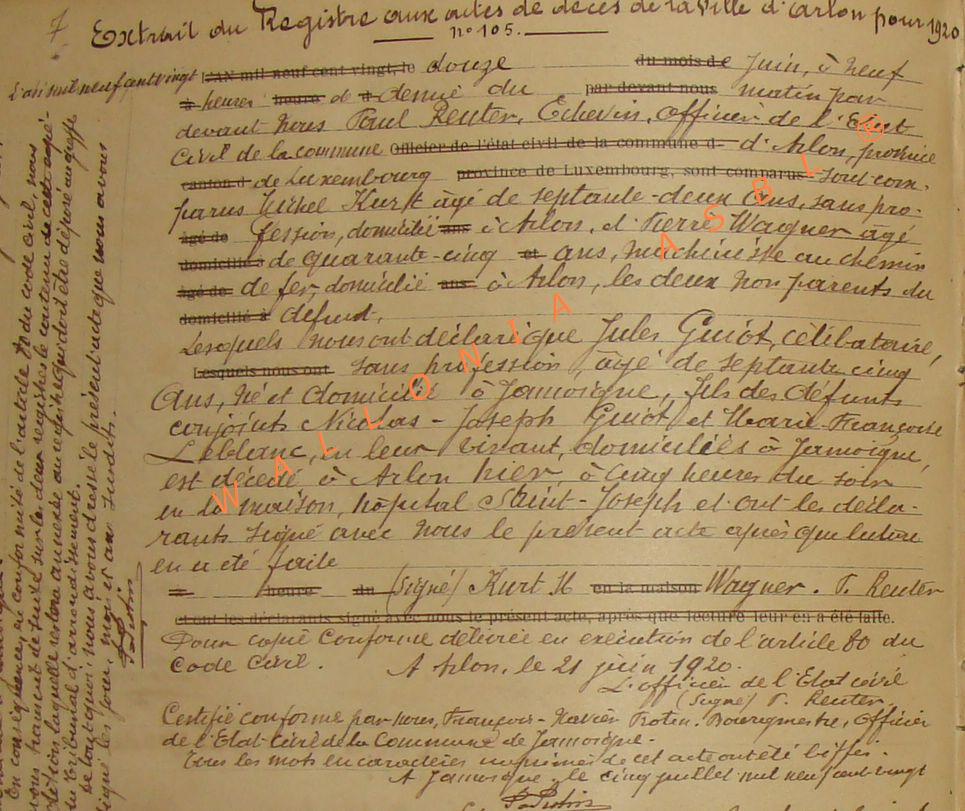 7
Extrait du Registre aux actes de décès de la Ville d'Arlon pour 1920
n° 105.
L'an mil neuf cent vingt L'AN mil neuf cent vingt, le douze du mois de Juin, à neuf
à heures heure et demie du par devant nous matin par
devant nous Paul Reuter, Echevin, Officier de l'Etat
Civil de la commune Officier de l'état civil de la commune d d'Arlon, province
canton d de Luxembourg province de Luxembourg, sont comparus Sont com-
parus Michel Kurst âgé de septante-deux Ans, sans pro-
âgé de fession, domicilié ans à Arlon, et Pierre Wagner âgé
domicilié à de quarante-cinq et ans, machiniste au chemin
âgé de de fer, domicilié ans à Arlon, les deux non parents du
domicilié à défunt.
Lesquels nous ont déclaré que Jules Guiot, célibataire,
Lesquels nous ont sans profession, âgé de septante cinq
Ans, né et domicilié à Jamoigne, fils des défunts
conjoints Nicolas-Joseph Guiot et Marie-Françoise
Leblanc, en leur vivant, domiciliés à Jamoigne,
est décédé à Arlon hier, à cinq heures du soir
en la maison, hôpital Saint-Joseph et ont les décla-
rants signé avec nous le présent acte après que lecture
en a été faite
heure du (signé) Kurt M en la maison Wagner. P. Reuter
et ont les déclarants signé avec nous le présent acte, après que lecture leur en a été faite.
Pour copie conforme délivrée en exécution de l'article 80 du
Code Civil. A Arlon, le 21 juin 1920.
L'officier de l'Etat civil
(signé) P. Reuter
Certifié conforme par nous, François-Xavier Protin, Bourgmestre, Officier
de l'Etat-Civil de la Commune de Jamoigne.
Tous les mots en caractères imprimés de cet acte ont été biffés.
A Jamoigne, le cinq juillet mil neuf cent vingt
En conséquence, en conformité de l'article 80 du code civil, nous
se fait quoi nous avons dressé le présent acte que nous avons
signé les jour, mois et an susdits.
WALLONIA ASBL